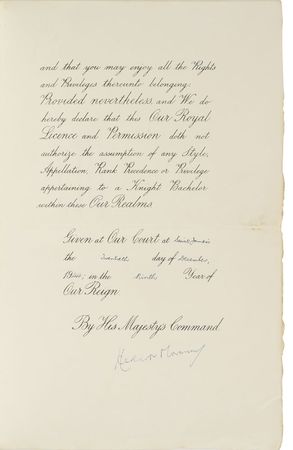 and that you may enjoy all the Rights
and Privileges thereunto belonging:
Provided nevertheless, and We do
hereby declare that this Our Royal
Licence and Permission doth not
authorize the assumption of any Style,
Appellation, Rank Precedence or Privilege
appertaining to a Knight Bachelor
within these Our Realms
Given at Our Court at Saint James's
the day of December,
1944, in the Ninth Year of
Our Reign.
By His Majesty's Command.